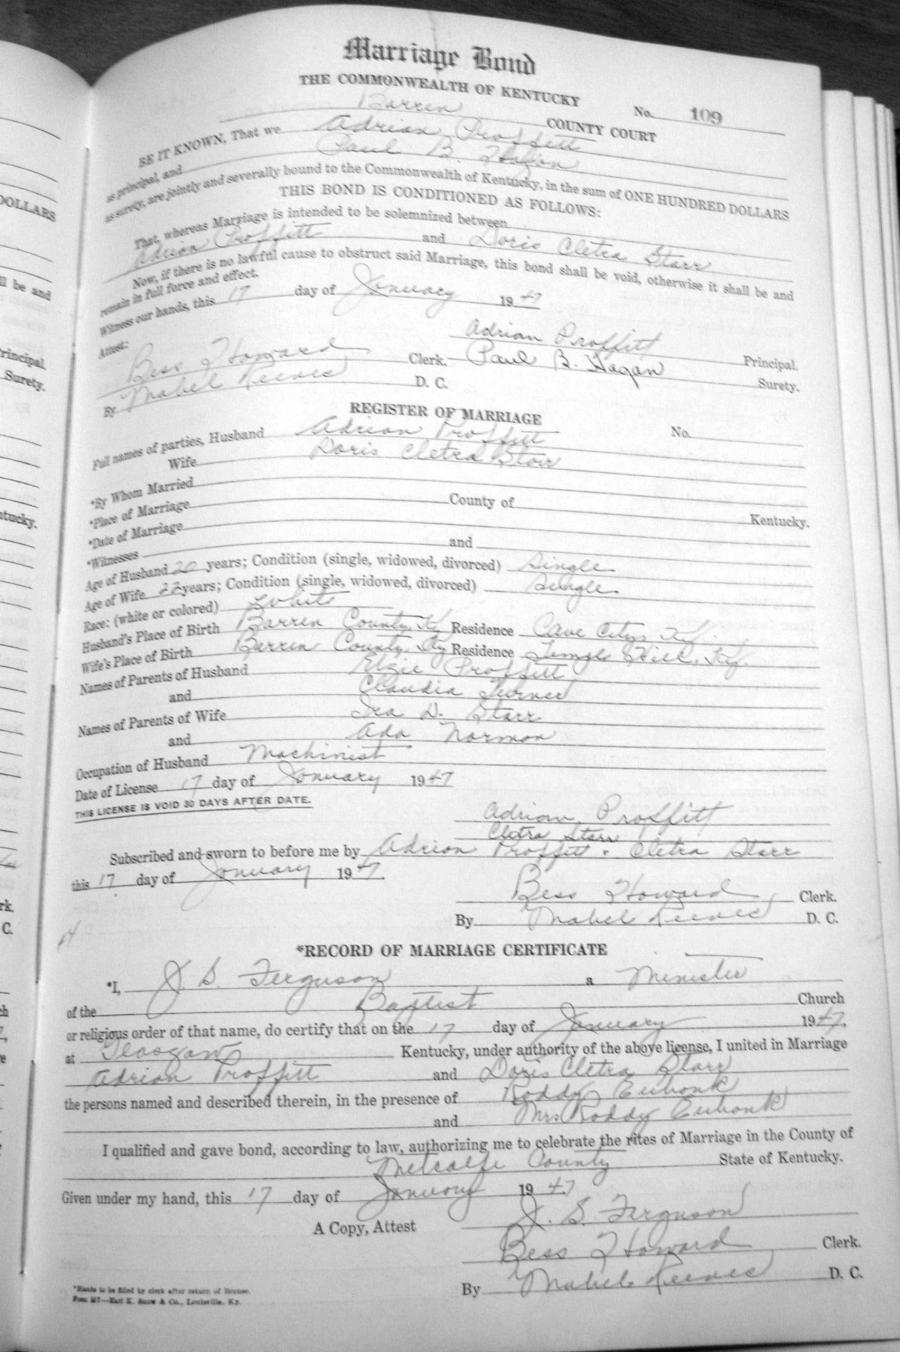 Marriage Bond
THE COMMONWEALTH OF KENTUCKY
No. 109
Barren COUNTY COURT
BE IT KNOWN, That we Adrian Proffitt
as principal, and Paul B. Hagan
as surety, are jointly and severally bound to the Commonwealth of Kentucky, in the sum of ONE HUNDRED DOLLARS
THIS BOND IS CONDITIONED AS FOLLOWS:
That, whereas Marriage is intended to be solemnized between
Adrian Proffitt and Doris Cletra Starr
Now, if there is no lawful cause to obstruct said Marriage, this bond shall be void, otherwise it shall be and
remain in full force and effect.
Witness our hands, this 17 day of January 1947
Adrian Proffitt Principal.
Attest:
Bess Howard Clerk. Paul B. Hagan Surety.
By Mabel Reeves D. C.
REGISTER OF MARRIAGE
Full names of parties, Husband Adrian Proffitt No.
Wife Doris Cletra Starr
*By Whom Married
*Place of Marriage County of Kentucky.
*Date of Marriage
*Witnesses and
Age of Husband 20 years; Condition (single, widowed, divorced) Single
Age of Wife 22 years; Condition (single, widowed, divorced) Single
Race: (white or colored) White
Husband's Place of Birth Barren County, Ky Residence Cave City, Ky.
Wife's Place of Birth Barren County, Ky Residence Temple Hill, Ky
Names of Parents of Husband Elzie Proffitt
and Claudia Turner
Names of Parents of Wife Ira D. Starr
and Ada Norman
Occupation of Husband Machinist
Date of License 17 day of January 1947
THIS LICENSE IS VOID 30 DAYS AFTER DATE.
Adrian Proffitt
Cletra Starr
Subscribed and sworn to before me by Adrian Proffitt. Cletra Starr
this 17 day of January 1947.
Bess Howard Clerk.
By Mabel Reeves D. C.
*RECORD OF MARRIAGE CERTIFICATE
*I, J. S. Ferguson a Minister
of the Baptist Church
or religious order of that name, do certify that on the 17 day of January 1947,
at Kentucky, under authority of the above license, I united in Marriage
Adrian Proffitt and Doris Cletra Starr
the persons named and described therein, in the presence of Roddy Eubank
and Mrs. Roddy Eubank
I qualified and gave bond, according to law, authorizing me to celebrate the rites of Marriage in the County of
Metcalfe County State of Kentucky.
Given under my hand, this 17 day of January 1947
J. S. Ferguson
A Copy, Attest
Bess Howard Clerk.
By Mabel Reeves D. C.
*Blanks to be filled by clerk after return of license.
DOLLARS
ll be and
rincipal.
Surety.
tucky.
rk.
C.